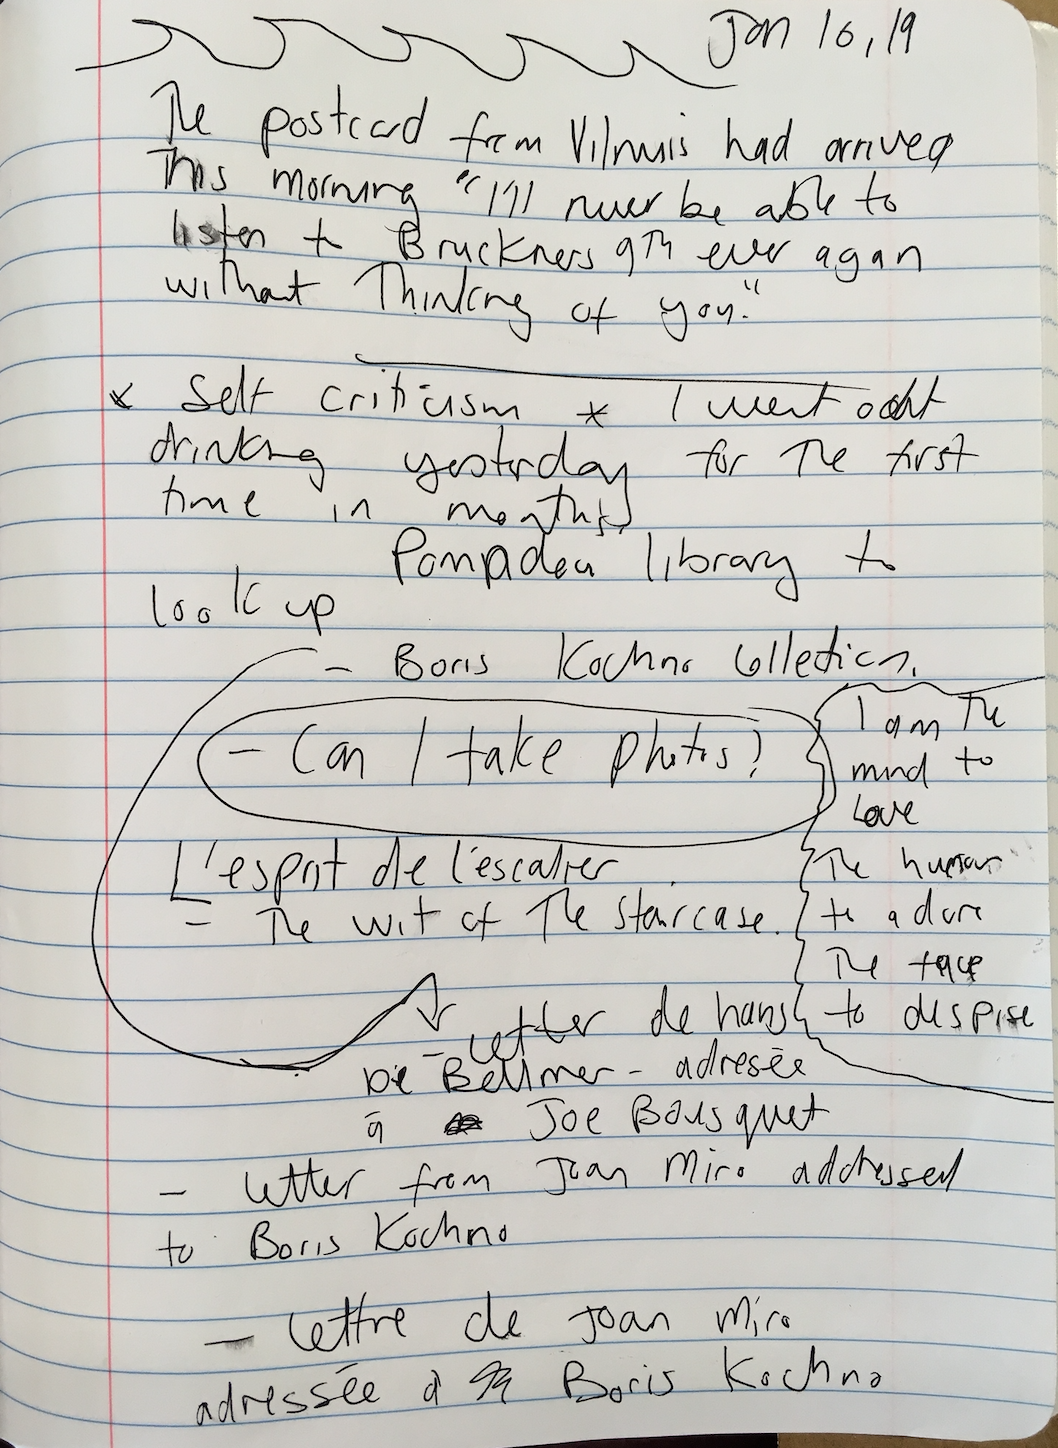 Jan 16, 19
The postcard from Vilnuis had arrived
This morning "I'll never be able to
listen to Bruckners 9th ever again
without Thinking of you."
* Self criticism * I went out
drinking yesterday for The first
time in months
Pompadou library to
look up
- Boris Kochno Collection.
- Can I take photos?
I am The
mind to
Love
The human
to adore
The face
to despise
L'esprit de l'escalier
= The wit of The staircase.
- letter de hans
Bellmer - adresée
à Joe Bousquet
- letter from Joan Miro addressed
to Boris Kochno
- lettre de Joan Miro
adressée à Boris Kochno